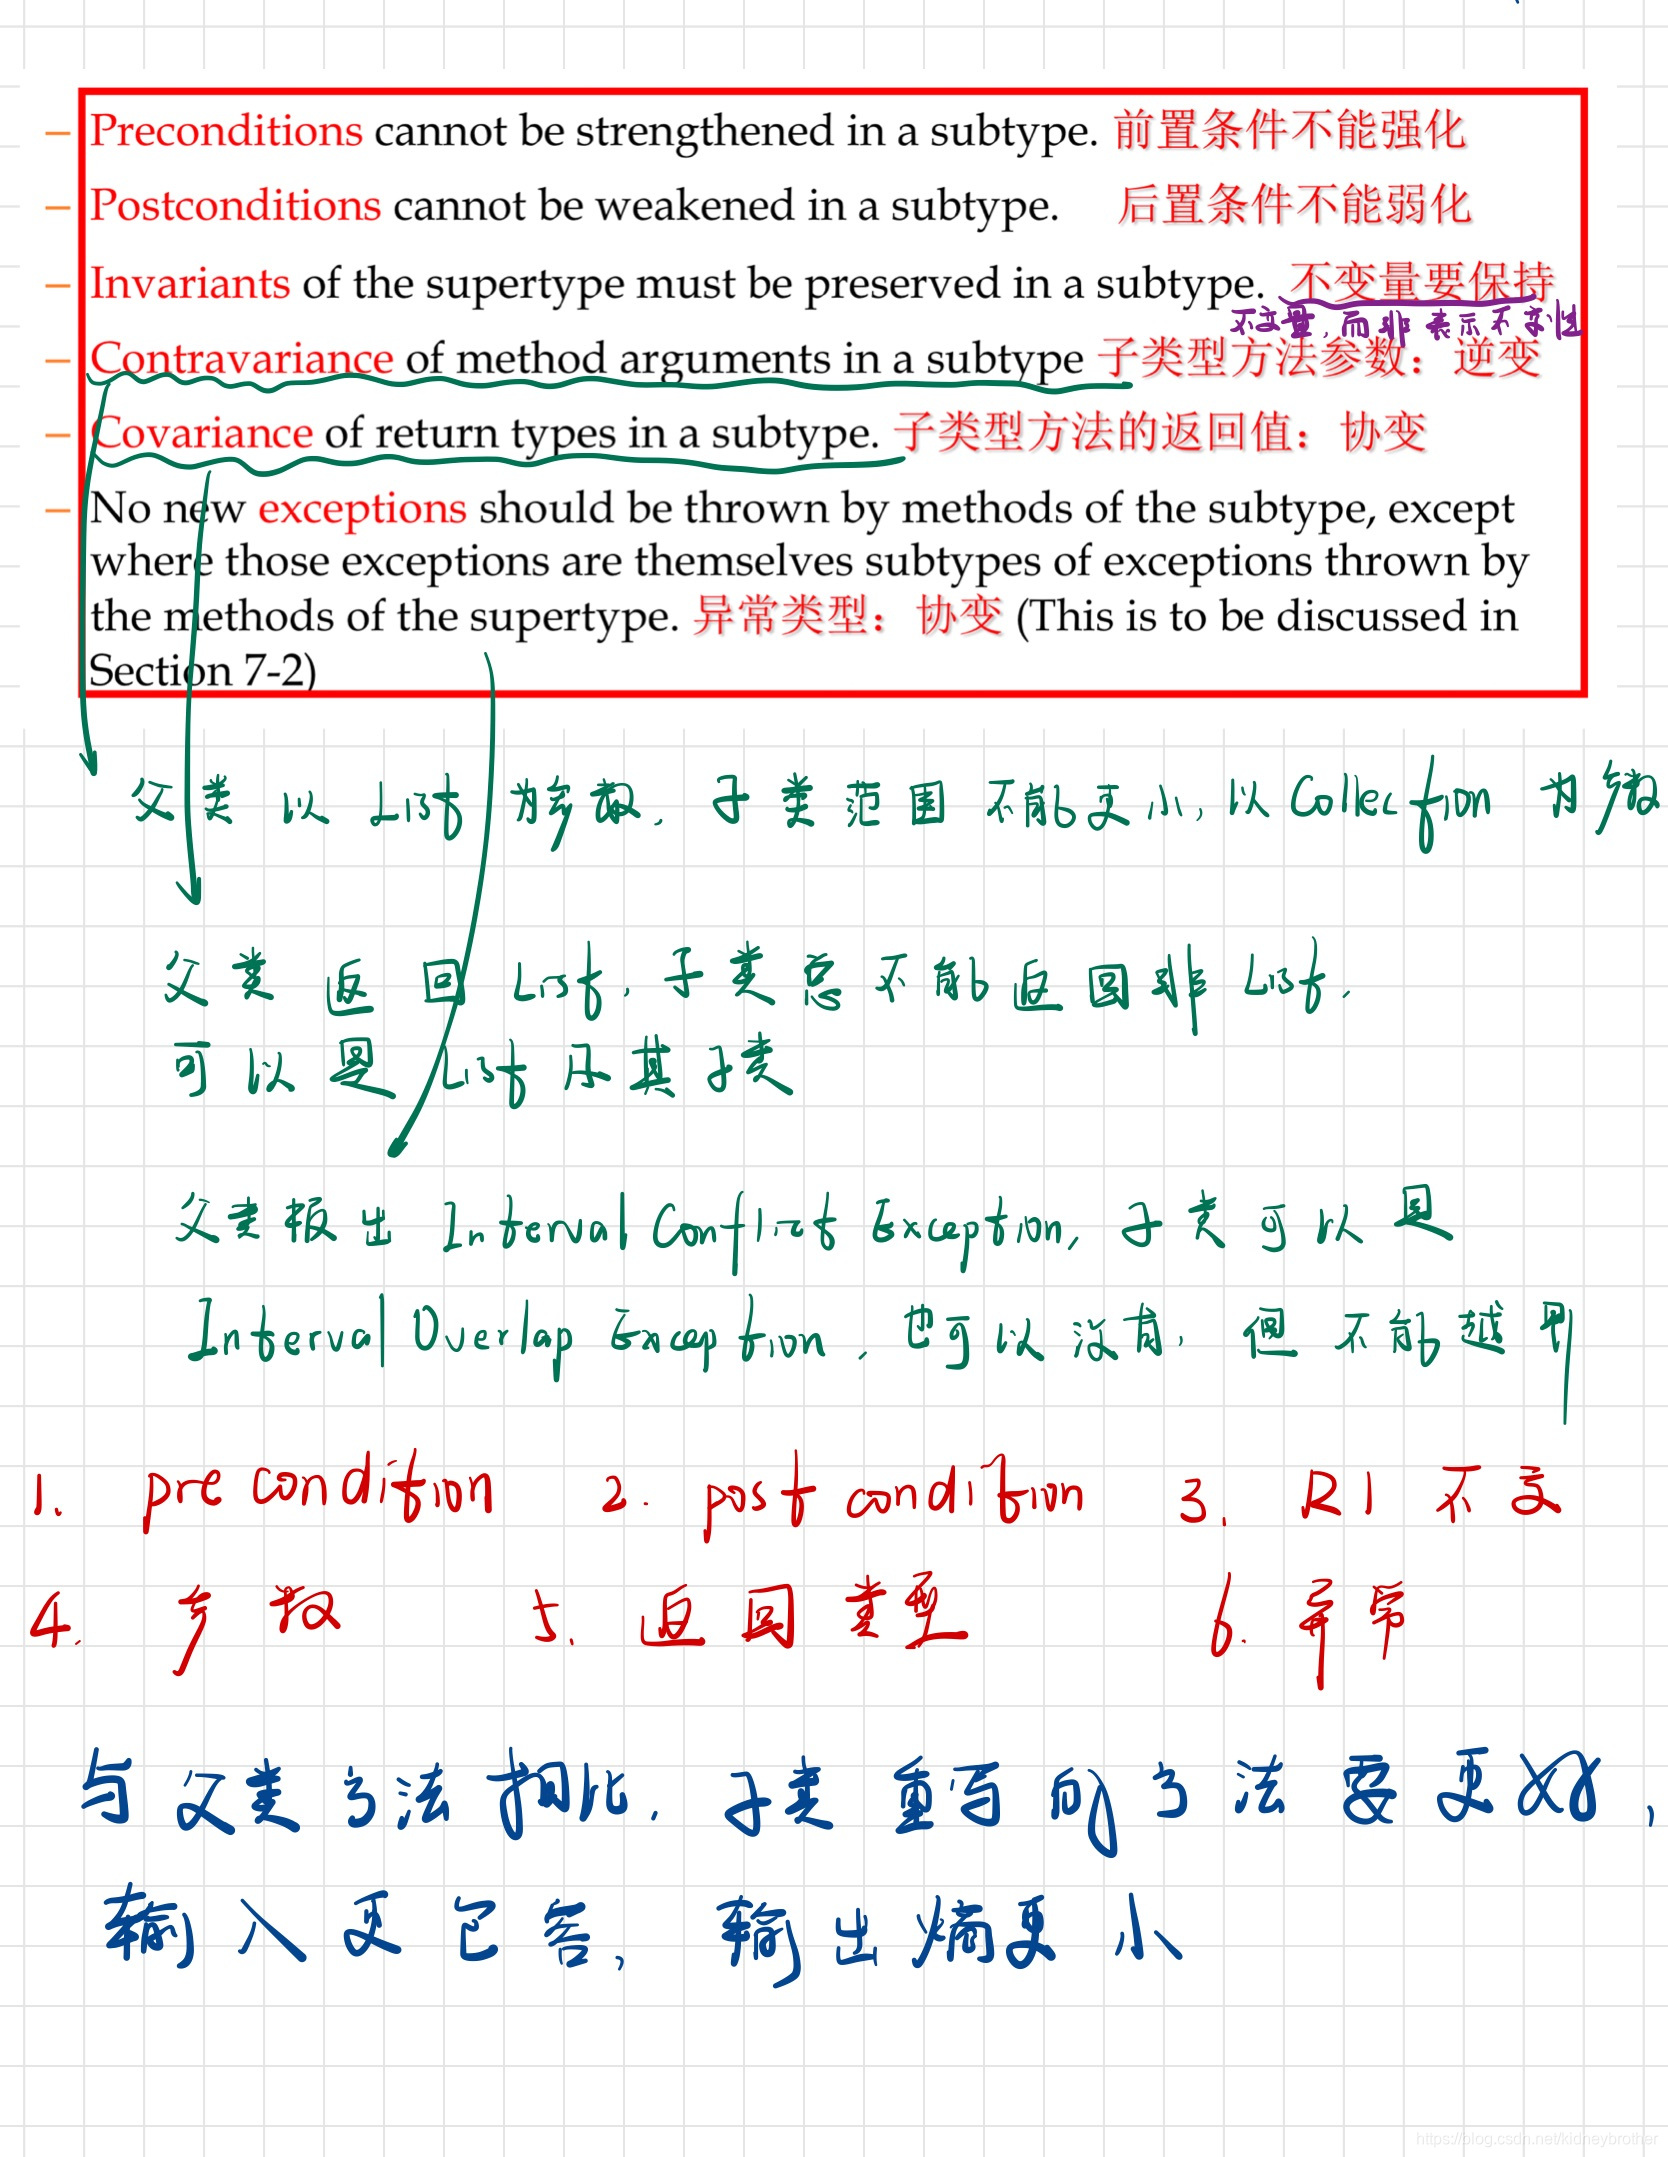 – Preconditions cannot be strengthened in a subtype. 前置条件不能强化
– Postconditions cannot be weakened in a subtype. 后置条件不能弱化
– Invariants of the supertype must be preserved in a subtype. 不变量要保持
不变量,而非表示不变性
– Contravariance of method arguments in a subtype 子类型方法参数：逆变
– Covariance of return types in a subtype. 子类型方法的返回值：协变
– No new exceptions should be thrown by methods of the subtype, except
where those exceptions are themselves subtypes of exceptions thrown by
the methods of the supertype. 异常类型：协变 (This is to be discussed in
Section 7-2)
父类以 List 为参数, 子类范围不能更小, 以 Collection 为参数
父类返回 List, 子类总不能返回非 List.
可以是 List 及其子类
父类抛出 Interval Conflict Exception, 子类可以是
Interval Overlap Exception, 也可以没有, 但不能越界
1. pre condition 2. post condition 3. RI 不变
4. 参数 5. 返回类型 6. 异常
与父类方法相比, 子类重写的方法要更好,
输入更包容, 输出熵更小
https://blog.csdn.net/kidneybrother